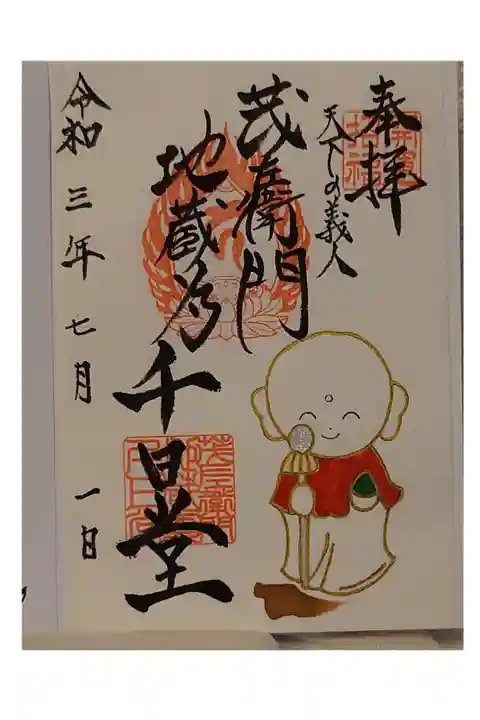 奉拝
天下の義人
茂左衛門
地蔵尊
千日堂
令和三年七月一日